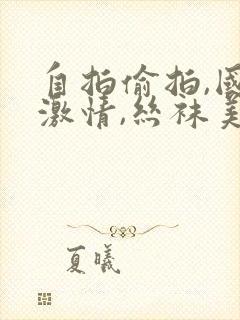 自拍偷拍,國
激情,絲袜美
夏曦